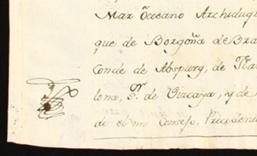 Mar Occeano Archidug
que de Borgoña de Bra
Conde de Abspurg, de
lona, Sr. de Vizcaya, y de
de el mi Consejo, Presiden